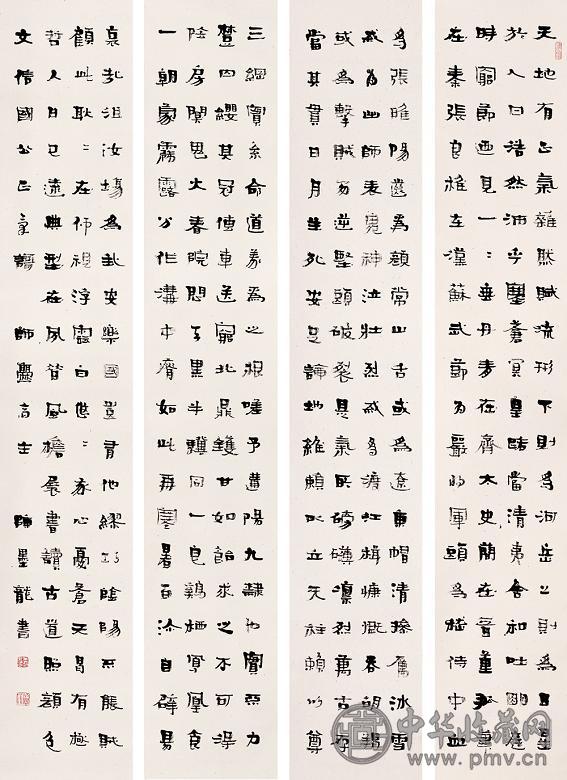 天地有正氣雜然賦流形下則為河岳上則為日星
於人曰浩然沛乎塞蒼冥皇路當清夷含和吐明庭
時窮節迺見一々垂丹青在齊太史簡在晉董狐筆
在秦張良椎在漢蘇武節為嚴將軍頭為嵇侍中血
為張睢陽齒為顏常山舌或為遼東帽清操厲冰雪
或為出師表鬼神泣壯烈或為渡江楫慷慨吞胡羯
或為擊賊笏逆豎頭破裂是氣所磅礴凜烈萬古存
當其貫日月生死安足論地維賴以立天柱賴以尊
三綱實系命道義為之根嗟予遘陽九隸也實不力
楚囚纓其冠傳車送窮北鼎鑊甘如飴求之不可得
陰房闃鬼火春院閟天黑牛驥同一皂鷄栖鳳凰食
一朝蒙霧露分作溝中瘠如此再寒暑百沴自辟易
哀哉沮汝場為我安樂國豈有他繆巧陰陽不能賊
顧此耿々在仰視浮雲白悠々我心憂蒼天曷有極
哲人日已遠典型在夙昔風檐展書讀古道照顏色
文信國公正氣歌 師 高士 陳墨龍書
中华收藏网
www.pmv.cn